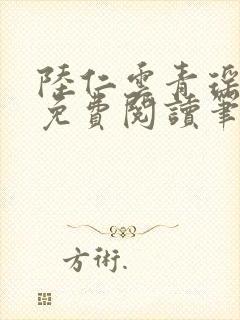 陸仁雲青瑤
免費閱讀筆
方術.